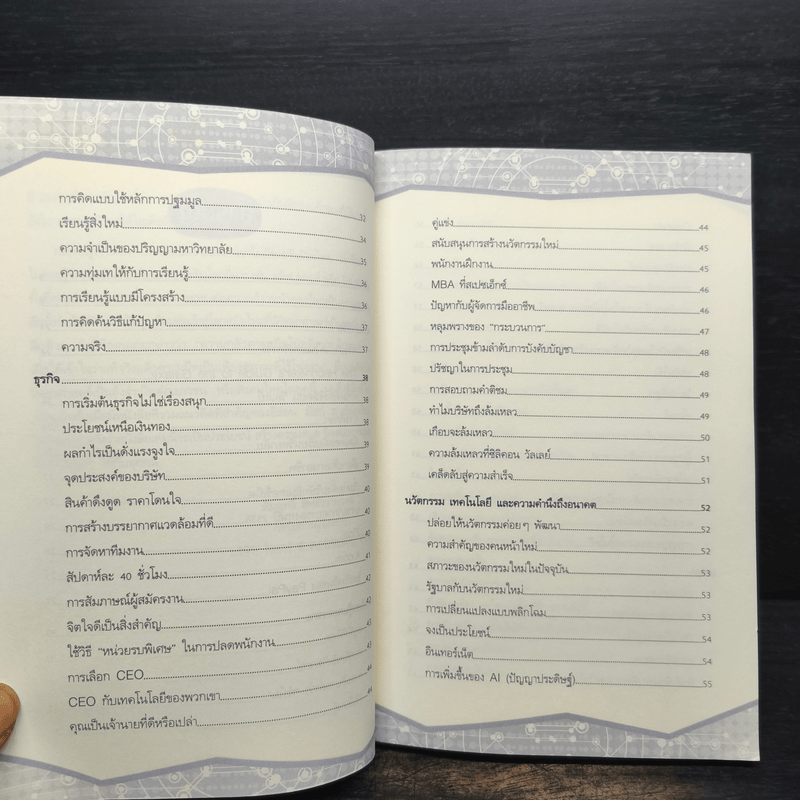 การคิดแบบใช้หลักการปฐมมูล 32
เรียนรู้สิ่งใหม่ 34
ความจำเป็นของปริญญามหาวิทยาลัย 35
ความทุ่มเทให้กับการเรียนรู้ 36
การเรียนรู้แบบมีโครงสร้าง 36
การคิดค้นวิธีแก้ปัญหา 37
ความจริง 37
ธุรกิจ 38
การเริ่มต้นธุรกิจไม่ใช่เรื่องสนุก 38
ประโยชน์เหนือเงินทอง 38
ผลกำไรเป็นดั่งแรงจูงใจ 39
จุดประสงค์ของบริษัท 39
สินค้าดึงดูด ราคาโดนใจ 40
การสร้างบรรยากาศแวดล้อมที่ดี 40
การจัดหาทีมงาน 40
สัปดาห์ละ 40 ชั่วโมง 41
การสัมภาษณ์ผู้สมัครงาน 42
จิตใจดีเป็นสิ่งสำคัญ 42
ใช้วิธี "หน่วยรบพิเศษ" ในการปลดพนักงาน 43
การเลือก CEO 43
CEO กับเทคโนโลยีของพวกเขา 44
คุณเป็นเจ้านายที่ดีหรือเปล่า 44
คู่แข่ง 44
สนับสนุนการสร้างนวัตกรรมใหม่ 45
พนักงานฝึกงาน 45
MBA ที่สเปซเอ็กซ์ 46
ปัญหากับผู้จัดการมืออาชีพ 46
หลุมพรางของ "กระบวนการ" 47
การประชุมข้ามลำดับการบังคับบัญชา 48
ปรัชญาในการประชุม 48
การสอบถามคำติชม 49
ทำไมบริษัทถึงล้มเหลว 49
เกือบจะล้มเหลว 50
ความล้มเหลวที่ซิลิคอน วัลเลย์ 51
เคล็ดลับสู่ความสำเร็จ 51
นวัตกรรม เทคโนโลยี และความคำนึงถึงอนาคต 52
ปล่อยให้นวัตกรรมค่อยๆ พัฒนา 52
ความสำคัญของคนหน้าใหม่ 52
สภาวะของนวัตกรรมใหม่ในปัจจุบัน 53
รัฐบาลกับนวัตกรรมใหม่ 53
การเปลี่ยนแปลงแบบพลิกโฉม 53
จงเป็นประโยชน์ 54
อินเทอร์เน็ต 54
การเพิ่มขึ้นของ AI (ปัญญาประดิษฐ์) 55